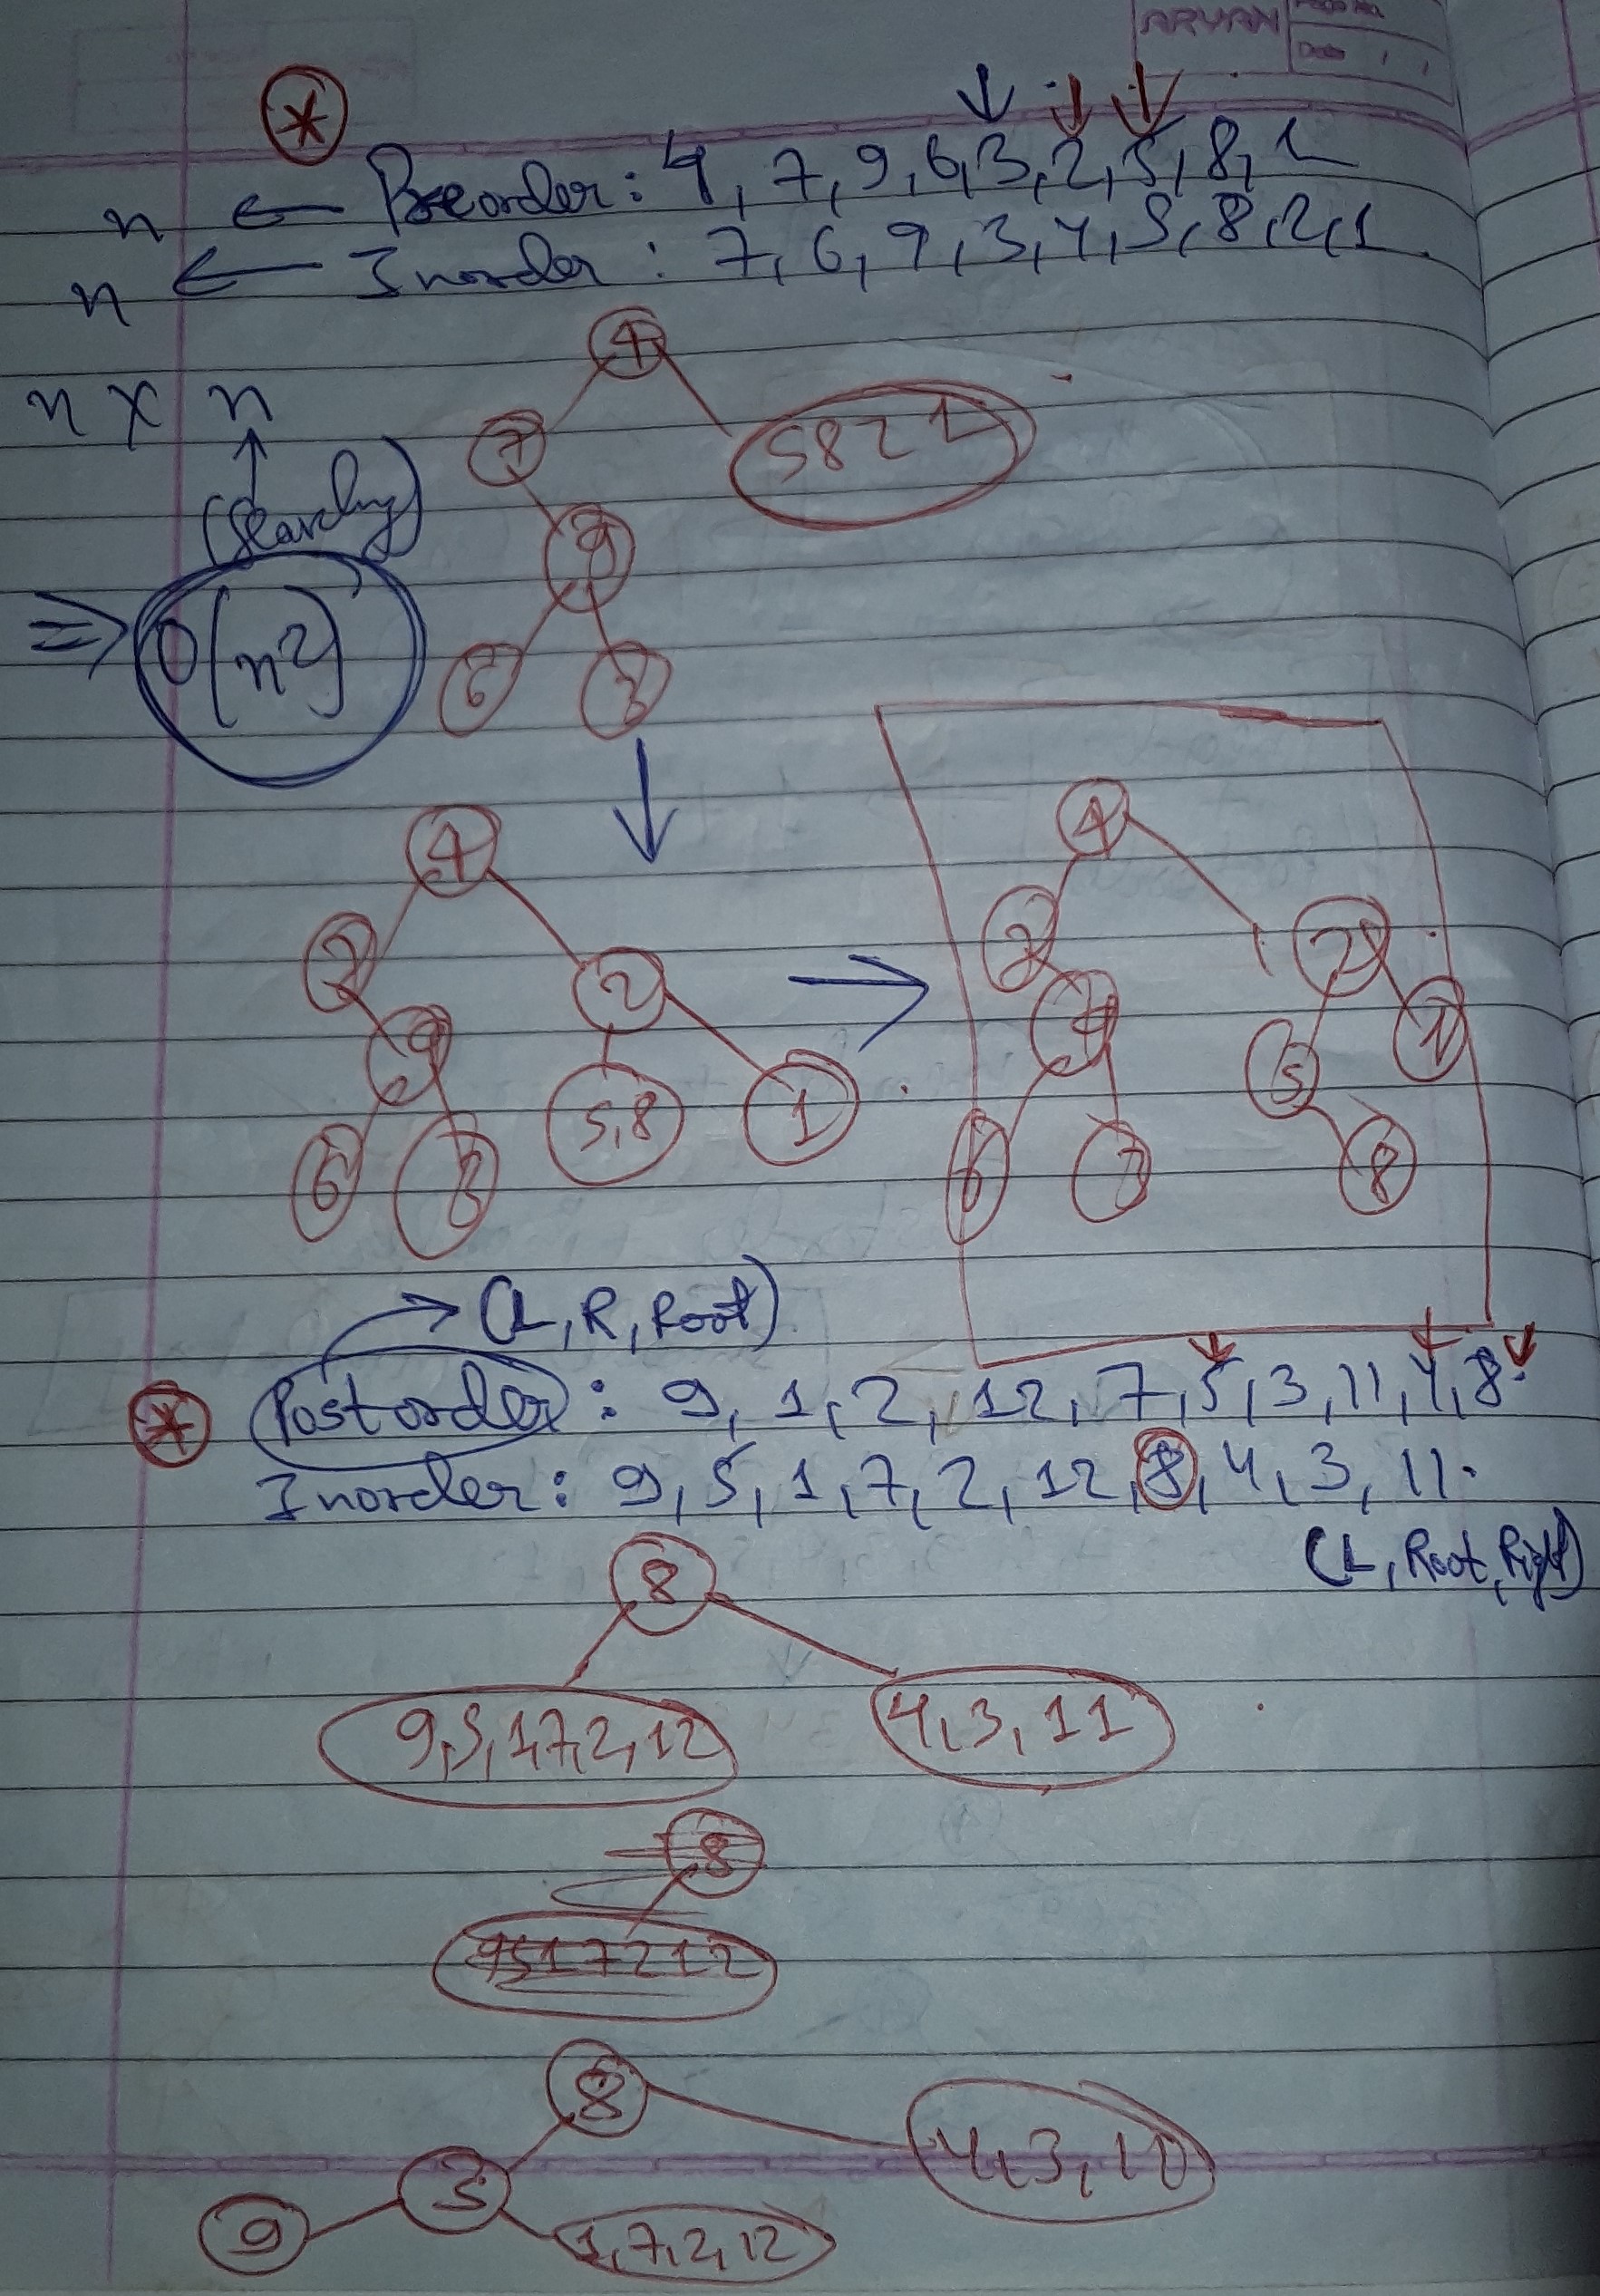 ARYAN
Page No.
Date / /
*
n ← Preorder: 4, 7, 9, 6, 3, 2, 5, 8, 1
n ← Inorder: 7, 6, 9, 3, 4, 5, 8, 2, 1
4
n × n
7
5 8 2 1
(Searching)
9
⇒ O(n2)
6 3
4 4
7 2 7 2
9 9
5,8 1 5 1
6 3 6 3 8
→ (L, R, Root)
* Postorder: 9, 1, 2, 12, 7, 5, 3, 11, 4, 8.
Inorder: 9, 5, 1, 7, 2, 12, 8, 4, 3, 11.
(L, Root, Right)
8
9,5,1,7,2,12 4,3,11
8
9 5 1 7 2 12
8
5 4,3,11
9 1,7,2,12